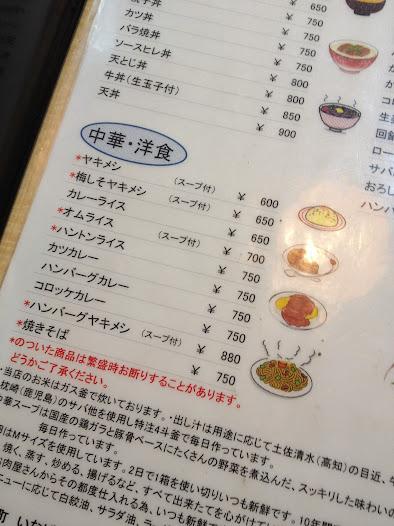 子丼 ¥ 650
カツ丼 ¥ 750
バラ焼丼 ¥ 750
ソースヒレ丼 ¥ 750
天とじ丼 ¥ 800
牛丼(生玉子付) ¥ 850
天丼 ¥ 900
中華・洋食
*ヤキメシ (スープ付) ¥ 600
*梅しそヤキメシ (スープ付) ¥ 650
カレーライス ¥ 650
*オムライス (スープ付) ¥ 700
*ハントンライス ¥ 750
カツカレー ¥ 750
ハンバーグカレー ¥ 750
コロッケカレー ¥ 750
*ハンバーグヤキメシ (スープ付) ¥ 880
*焼きそば ¥ 750
*のついた商品は繁盛時お断りすることがあります。
どうかご了承ください。
・当店のお米はガス釜で炊いております。・出し汁は用途に応じて土佐清水(高知)の目近、
枕崎(鹿児島)のサバ他を使用し特注4斗釜で毎日作っています。
華スープは国産の鶏ガラと豚骨ベースにたくさんの野菜を煮込んだ、スッキリした味わいの
毎日作っています。
はMサイズを使用しています。2日で1箱を使い切りいつも新鮮です。10年
焼く、蒸す、炒める、揚げるなど、すべて出来たてを心がけて
肉屋さんからその都度仕入れる為、いつも新鮮
ニューに応じて白絞油、サラダ油、